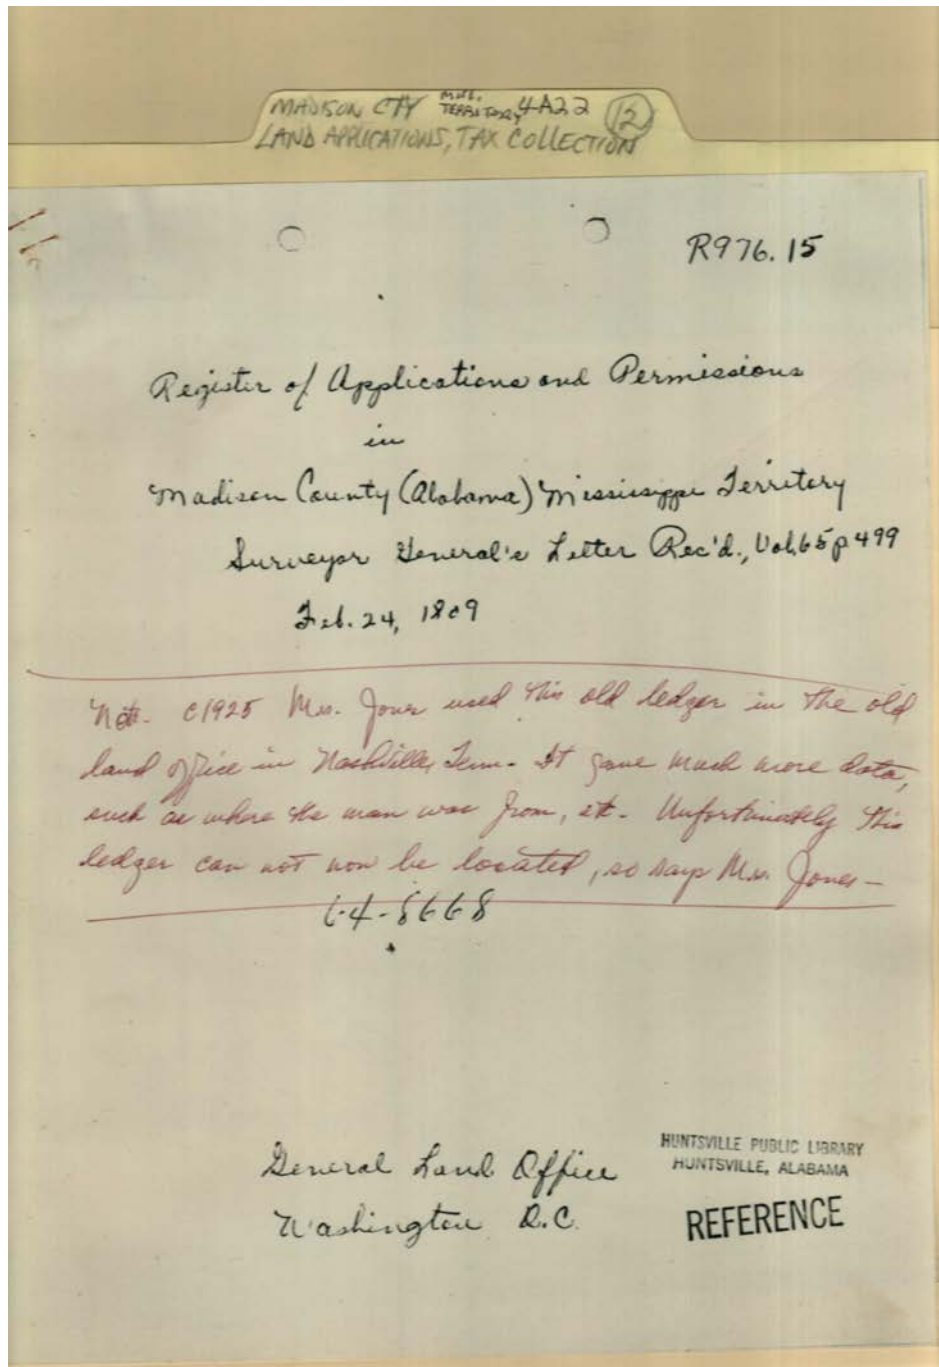 MADISON CTY MISS. TERRITORY 4A22 12
LAND APPLICATIONS, TAX COLLECTION
R976.15
Register of Applications and Permissions
in
Madison County (Alabama) Mississippi Territory
Surveyor General's Letter Rec'd., Vol. 65 p 499
Feb. 24, 1809
Note. c1925 Mrs. Jones used this old ledger in the old
land office in Nashville, Tenn. It gave much more data,
such as where the man was from, etc. Unfortunately this
ledger can not now be located, so says Mrs. Jones—
6-4-8668
General Land Office
Washington D.C.
HUNTSVILLE PUBLIC LIBRARY
HUNTSVILLE, ALABAMA
REFERENCE